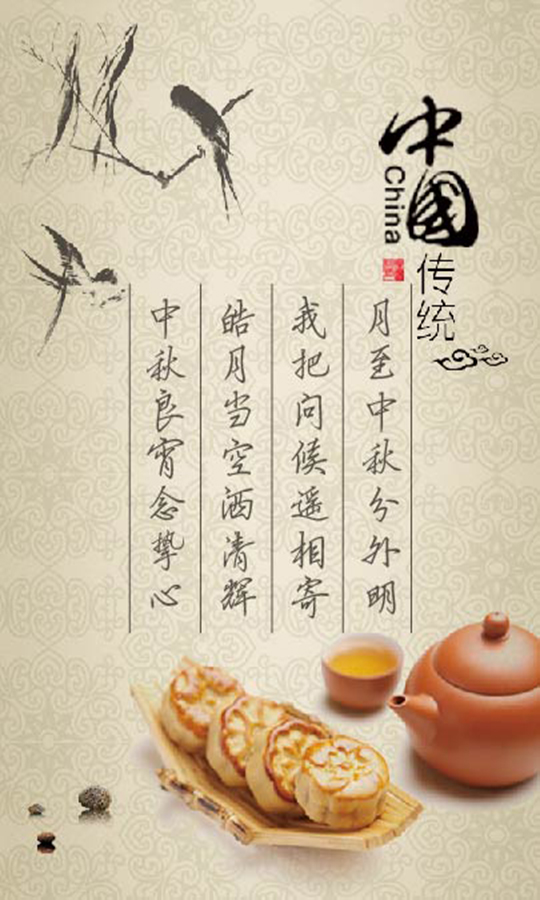 中国
China
传统
月至中秋分外明
我把问候遥相寄
皓月当空洒清辉
中秋良宵念挚心